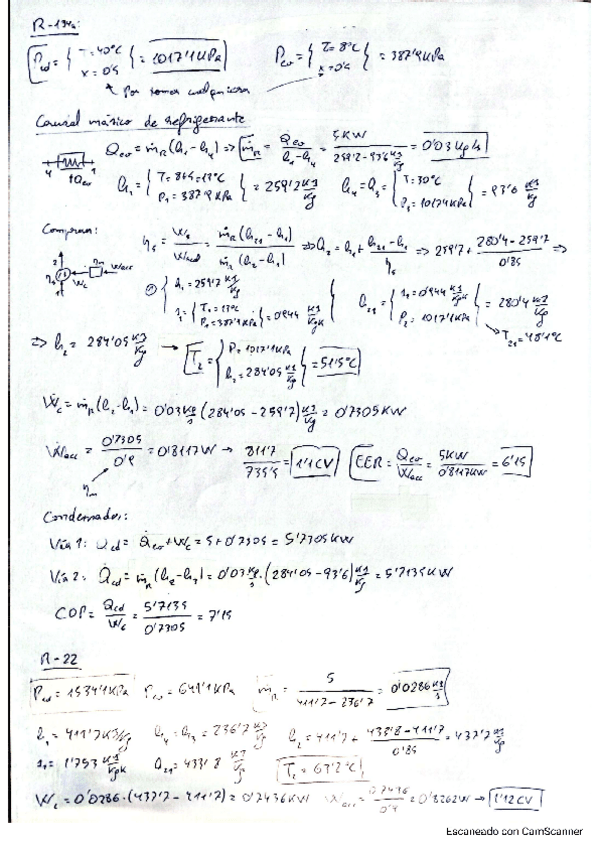 R-134a:
Pcd = { T=40°C x=0'5 } = 1017'1 KPa Pev = { T=8°C x=0'5 } = 387'9 KPa
Por tomar cualquiera
Caudal másico de refrigerante
Qev = ṁR(h1-h4) => ṁR = Qev / (h1-h4) = 5KW / (259'7-93'6 KJ/Kg) = 0'03 Kg/s
4 1 Qev
h1 = { T=8+5=13°C P1=387'9 KPa } = 259'7 KJ/Kg h4 = h3 = { T=30°C P3=1017'1 KPa } = 93'6 KJ/Kg
Compresor:
ηs = Ws / Wreal = ṁR(h2s-h1) / ṁR(h2-h1) => h2 = h1 + (h2s-h1) / ηs => 259'7 + (280'4-259'7) / 0'85 =>
h1 = 259'7 KJ/Kg
s1 = { T1=13°C P1=387'9 KPa } = 0'944 KJ/KgK h2s = { s1=0'944 KJ/KgK P2=1017'1 KPa } = 280'4 KJ/Kg
T2s=48'1°C
=> h2 = 284'05 KJ/Kg → T2 = { P2=1017'1 KPa h2=284'05 KJ/Kg } = 51'5°C
Ẇc = ṁR(h2-h1) = 0'03 Kg/s (284'05-259'7) KJ/Kg = 0'7305 KW
Ẇacc = 0'7305 / 0'9 = 0'8117W → 811'7 / 735'5 = 1'1 CV EER = Qev / Wacc = 5KW / 0'8117KW = 6'15
ηm
Condensador:
Vía 1: Qcd = Qev + Wc = 5+0'7305 = 5'7305 KW
Vía 2: Qcd = ṁR(h2-h3) = 0'03 Kg/s · (284'05-93'6) KJ/Kg = 5'7135 KW
COP = Qcd / Wc = 5'7135 / 0'7305 = 7'15
R-22
Pcd = 1534'1 KPa Pev = 641'1 KPa ṁR = 5 / (411'7-236'7) = 0'0286 Kg/s
h1 = 411'7 KJ/Kg h4 = h3 = 236'7 KJ/Kg h2 = 411'7 + (433'8-411'7) / 0'85 = 437'7 KJ/Kg
s1 = 1'753 KJ/KgK h2s = 433'8 KJ/Kg T2 = 67'2°C
Wc = 0'0286·(437'7-411'7) = 0'7436 KW Wacc = 0'7436 / 0'9 = 0'8262W → 1'12 CV
Escaneado con CamScanner